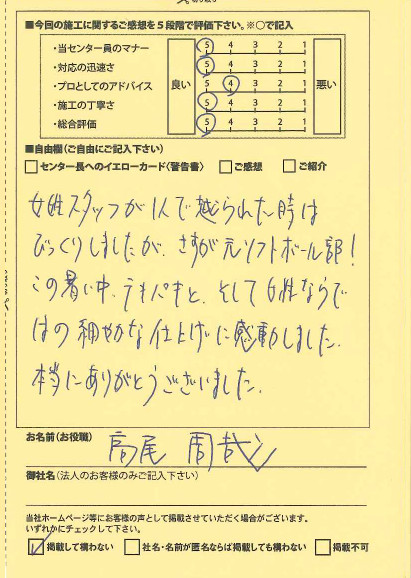 ■今回の施工に関するご感想を5段階で評価下さい。※○で記入
・当センター員のマナー
・対応の迅速さ
・プロとしてのアドバイス
・施工の丁寧さ
・総合評価
良い
5 4 3 2 1
5 4 3 2 1
5 4 3 2 1
5 4 3 2 1
5 4 3 2 1
悪い
■自由欄(ご自由にご記入下さい)
□センター長へのイエローカード(警告書) □ご感想 □ご紹介
女性スタッフが1人で越られた時は
びっくりしましたが、さすが元ソフトボール部!
この暑い中、テキパキと、そして女性ならで
はの細やかな仕上げに感動しました。
本当にありがとうございました。
お名前(お役職) 高尾 周哉
御社名(法人のお客様のみご記入下さい)
当社ホームページ等にお客様の声として掲載させていただく場合がございます。
いずれかにチェックして下さい。
☑掲載して構わない □社名・名前が匿名ならば掲載しても構わない □掲載不可